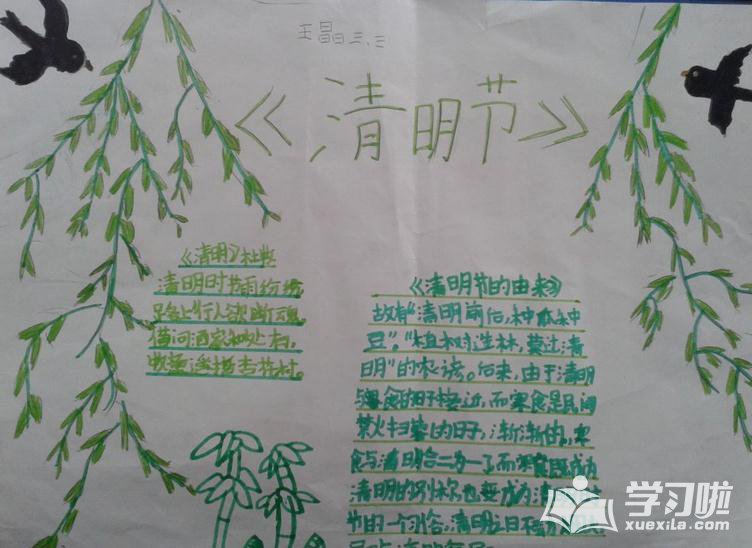 王晶晶三、三
《清明节》
《清明》杜牧
清明时节雨纷纷
路上行人欲断魂
借问酒家何处有
牧童遥指杏花村
《清明节的由来》
故有“清明前后，种瓜种
豆”。“植树造林，莫过清
明”的农谚。后来，由于清明
与寒食的日子接近，而寒食是民间
禁火扫墓的日子，渐渐的，寒
食与清明合二为一了而寒食既成为
清明的别称也变成为清明
节的一个习俗，清明之日不
学习啦
xuexila.com